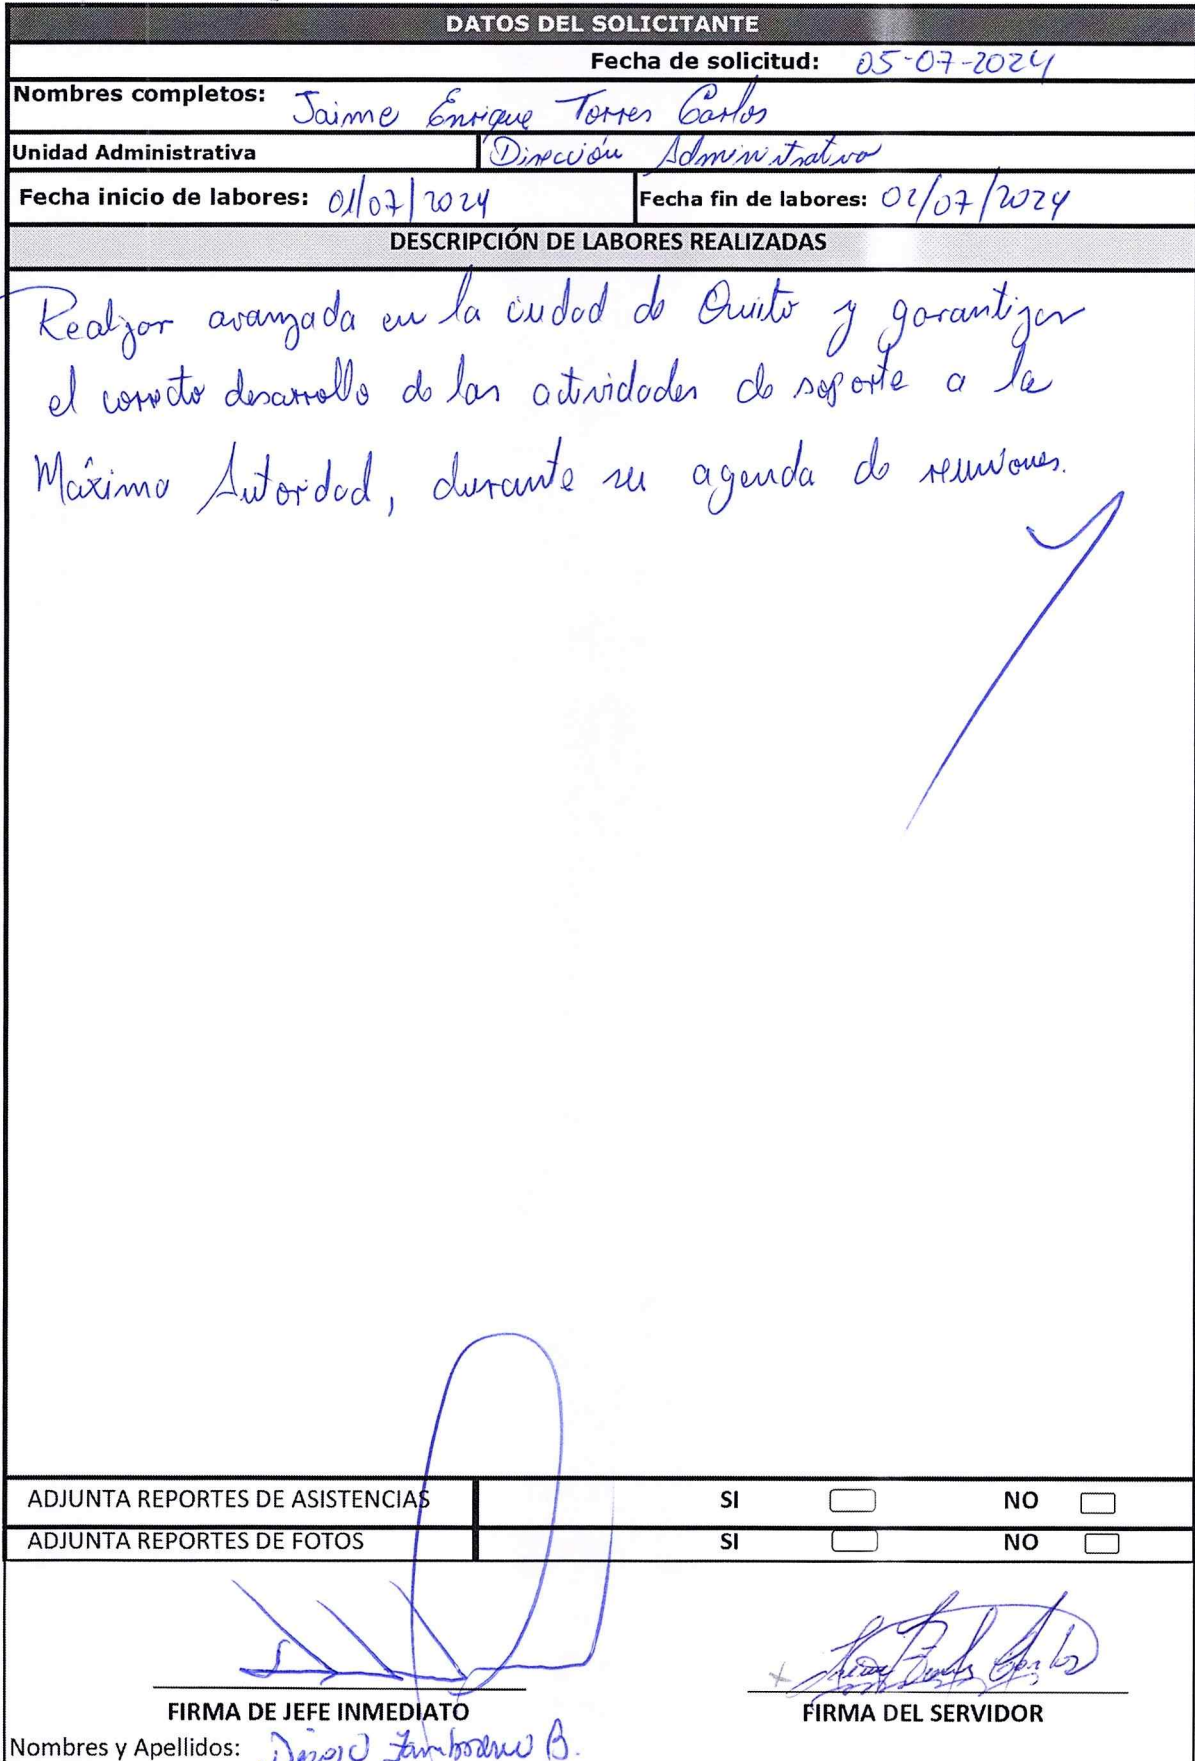 DATOS DEL SOLICITANTE
Fecha de solicitud: 05-07-2024
Nombres completos: Jaime Enrique Torres Carlos
Unidad Administrativa Dirección Administrativa
Fecha inicio de labores: 01/07/2024 Fecha fin de labores: 02/07/2024
DESCRIPCIÓN DE LABORES REALIZADAS
Realizar avanzada en la ciudad de Quito y garantizar
el correcto desarrollo de las actividades de soporte a la
Máxima Autoridad, durante su agenda de reuniones.
ADJUNTA REPORTES DE ASISTENCIAS SI NO
ADJUNTA REPORTES DE FOTOS SI NO
FIRMA DE JEFE INMEDIATO FIRMA DEL SERVIDOR
Nombres y Apellidos: B.